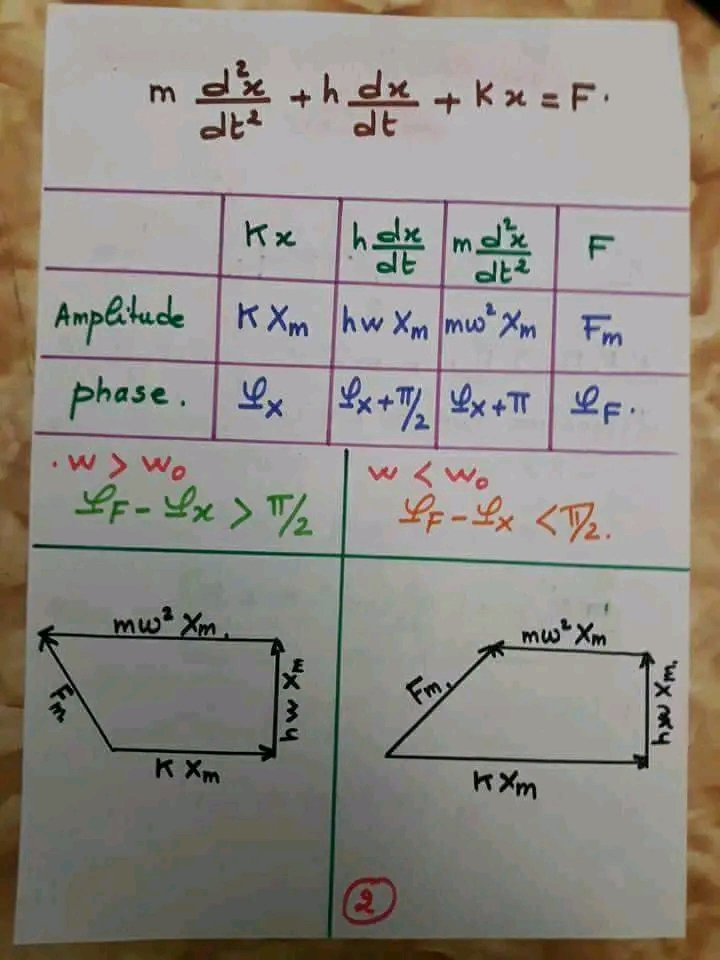 m d²x/dt² + h dx/dt + Kx = F.
Kx h dx/dt m d²x/dt² F
Amplitude K Xm hw Xm mω² Xm Fm
phase. φx φx+π/2 φx+π φF.
. w > wo
φF - φx > π/2
w < wo
φF - φx < π/2.
mω² Xm.
Fm
hw Xm
K Xm
mω² Xm
Fm.
hw Xm.
K Xm
2